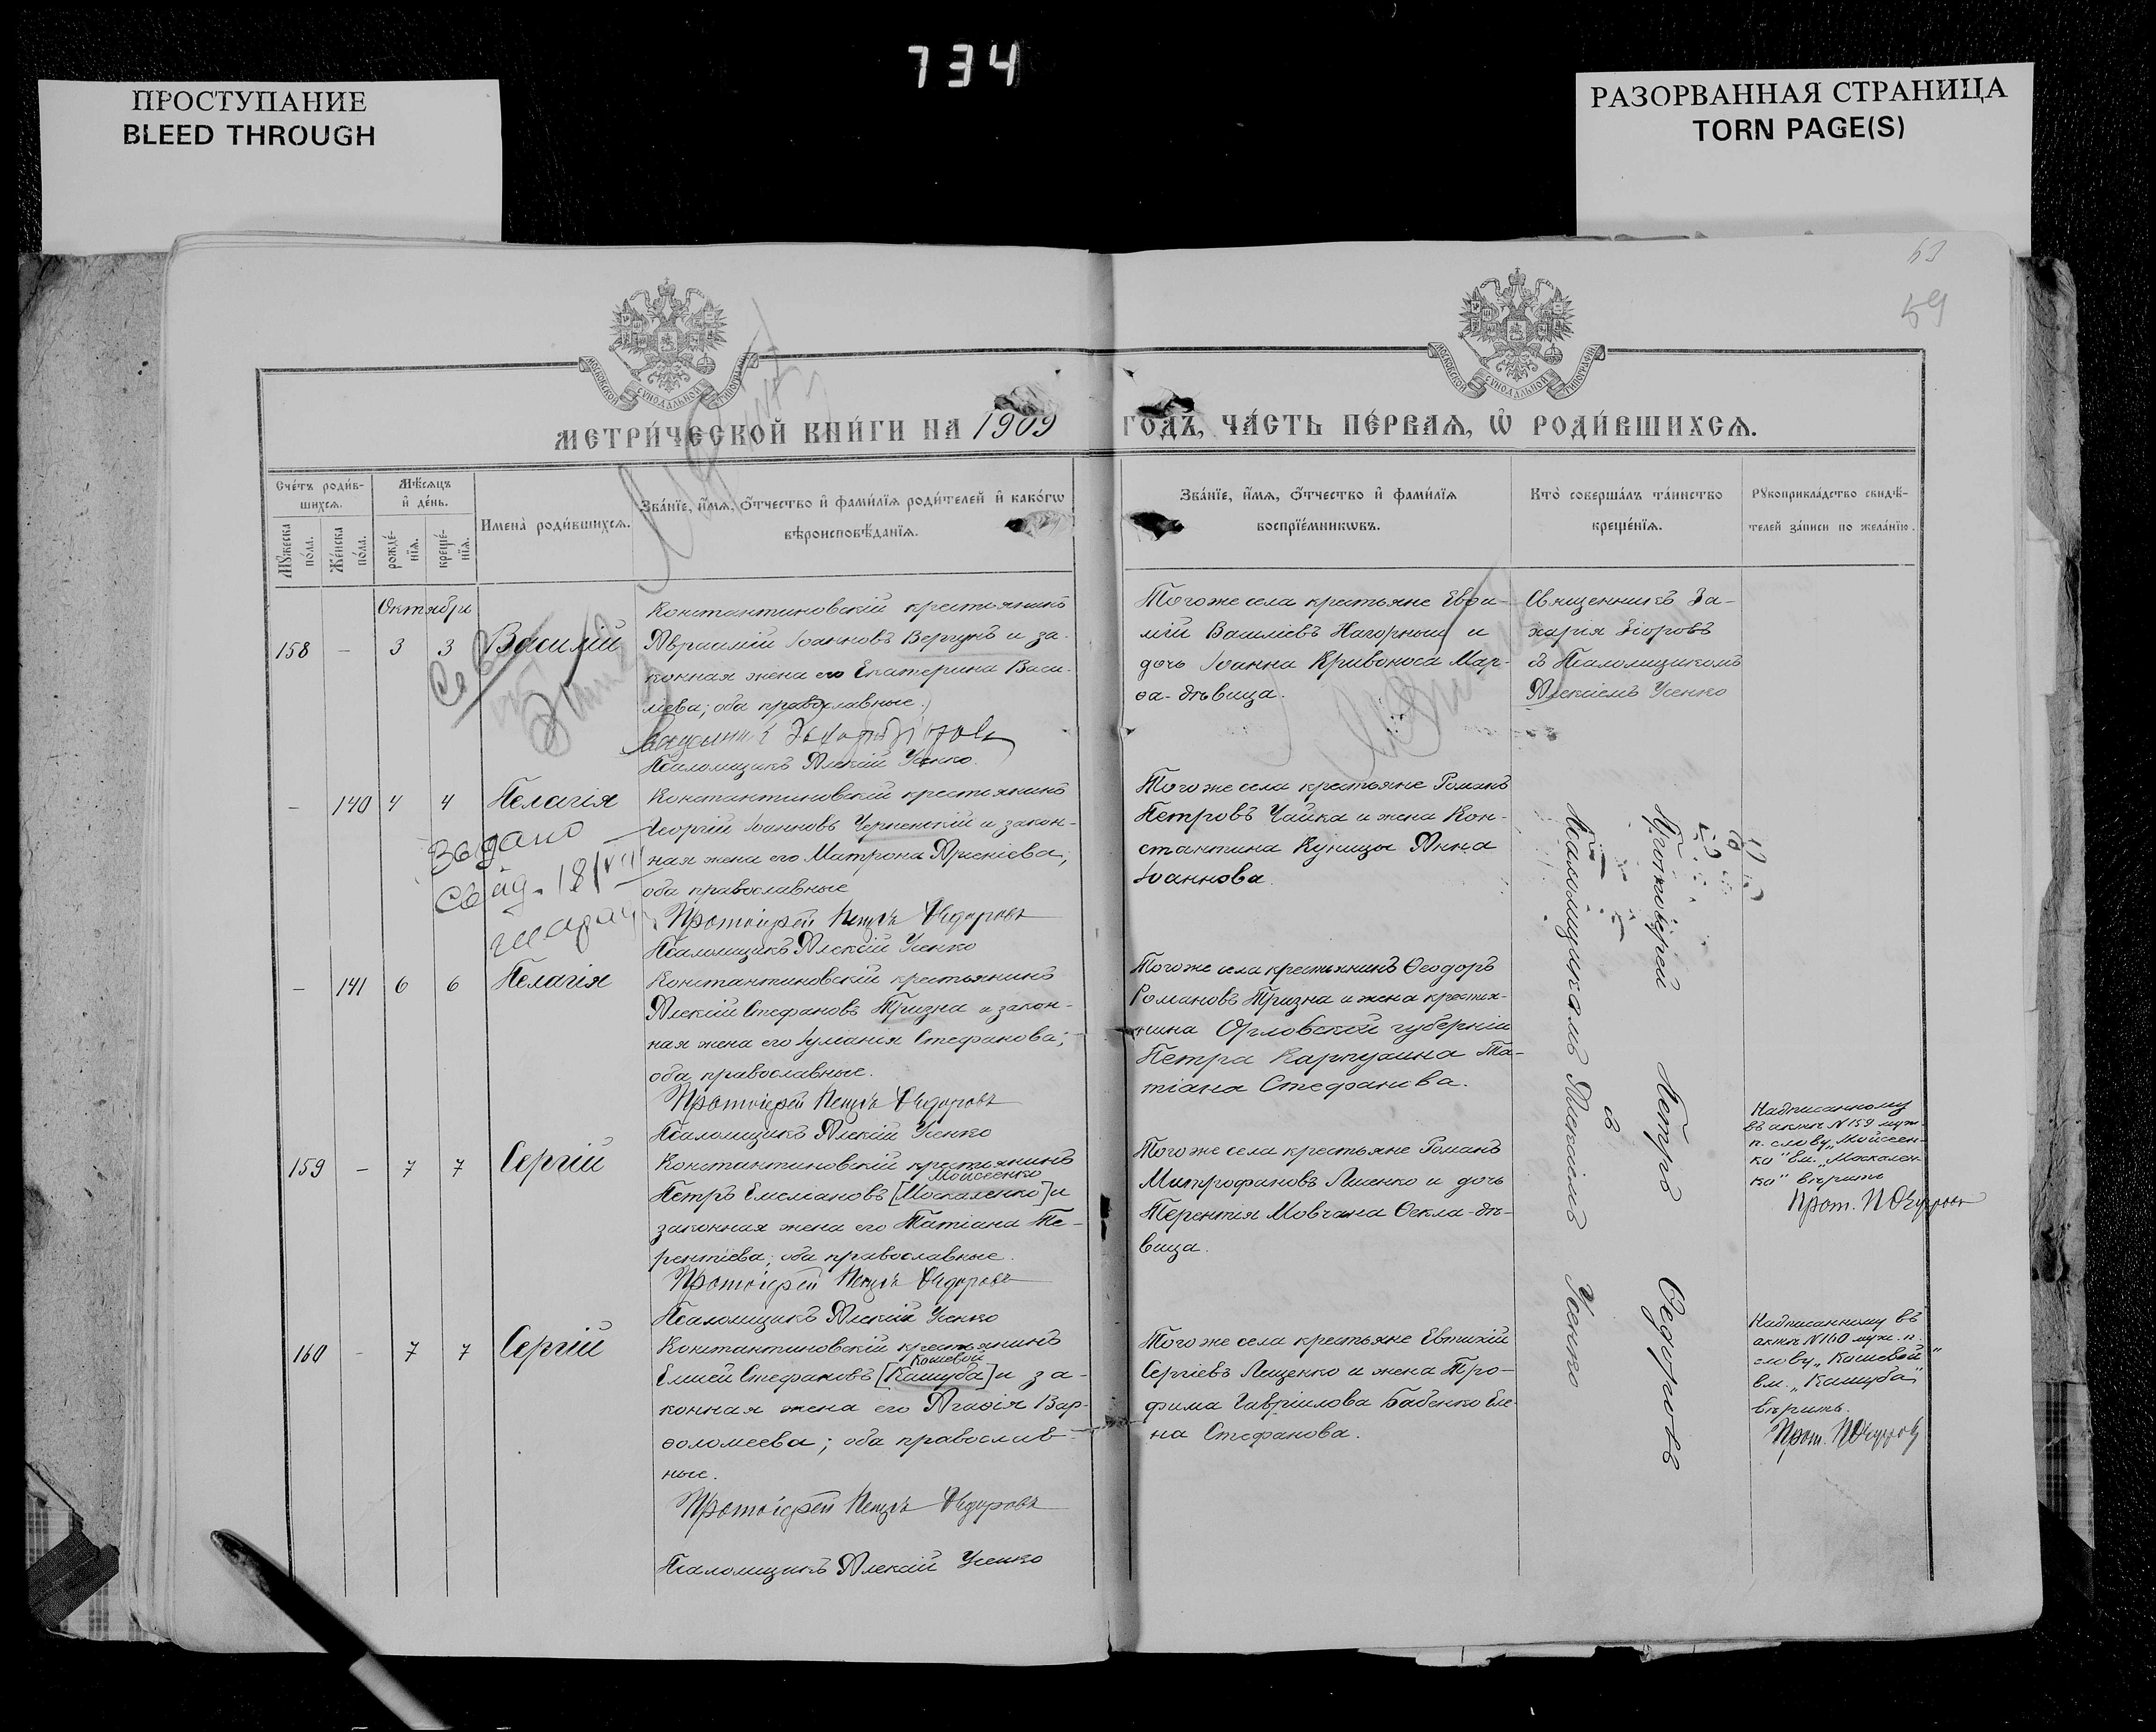 734
ПРОСТУПАНИЕ
BLEED THROUGH
РАЗОРВАННАЯ СТРАНИЦА
TORN PAGE(S)
59
МОСКОВСКОЙ СѴНОДАЛЬНОЙ ТИПОГРАФІИ
МОСКОВСКОЙ СѴНОДАЛЬНОЙ ТИПОГРАФІИ
МЕТРИ́ЧЕСКОЙ КНИ́ГИ НА 1909 ГОДЪ, ЧА́СТЬ ПЕ́РВАѦ, Ѡ҆ РОДИ́ВШИХСѦ.
Сче́тъ роди́в-
шихсѧ.
Мꙋ́жеска
по́ла.
Же́нска
по́ла.
Мѣ́сѧцъ
и҆ де́нь.
рожде́-
нїѧ.
креще́-
нїѧ.
Имена̀ роди́вшихсѧ.
Зва́нїе, и҆́мѧ, ѻ҆́тчество и҆ фами́лїѧ роди́телей и҆ како́гѡ
вѣроисповѣ́данїѧ.
Зва́нїе, и҆́мѧ, ѻ҆́тчество и҆ фами́лїѧ
воспрїе́мникѡвъ.
Кто̀ соверша́лъ та́инство
креще́нїѧ.
Рꙋкоприкла́дство свидѣ́-
телей за́писи по жела́нїю.
Октябрь
158 - 3 3 Василій
Константиновскій крестьянинъ
Авраамій Іоанновъ Вергунъ и за-
конная жена его Екатерина Васи-
ліева; оба православные.
Псаломщикъ Алексій Усенко.
Того же села крестьяне Евѳи-
мій Василіевъ Нагорный и
дочь Іоанна Кривоноса Мар-
ѳа-дѣвица.
Священникъ За-
харія
съ Псаломщикомъ
Алексіемъ Усенко
- 140 4 4 Пелагія
Константиновскій крестьянинъ
Георгій Іоанновъ Черненскій и закон-
ная жена его Матрона Арсеніева;
оба православные
Протоіерей Петръ Ѳедоровъ
Псаломщикъ Алексій Усенко
Того же села крестьяне Романъ
Петровъ Чайка и жена Кон-
стантина Куницы Анна
Іоаннова.
- 141 6 6 Пелагія
Константиновскій крестьянинъ
Алексій Стефановъ Тризна и закон-
ная жена его Іуліанія Стефанова;
оба православные.
Протоіерей Петръ Ѳедоровъ
Псаломщикъ Алексій Усенко
Того же села крестьянинъ Ѳеодоръ
Романовъ Тризна и жена крестья-
нина Орловской губерніи
Петра Карпухина Та-
тіана Стефанова.
159 - 7 7 Сергій
Константиновскій крестьянинъ
Мойсеенко
Петръ Емеліановъ [Москаленко] и
законная жена его Татіана Те-
рентіева; оба православные.
Протоіерей Петръ Ѳедоровъ
Псаломщикъ Алексій Усенко
Того же села крестьяне Романъ
Митрофановъ Лисенко и дочь
Терентія Мовчана Ѳекла-дѣ-
вица.
Надписанному
въ актѣ №159 муж.
п. слову „Мойсеен-
ко" вм. „Москален-
ко" вѣрить
Прот. П Ѳедоровъ
160 - 7 7 Сергій
Константиновскій крестьянинъ
Кошевой
Елисей Стефановъ [Кашуба] и за-
конная жена его Агаѳія Вар-
ѳоломеева; оба православ-
ные.
Протоіерей Петръ Ѳедоровъ
Псаломщикъ Алексій Усенко
Того же села крестьяне Евтихій
Сергіевъ Лещенко и жена Тро-
фима Гавріилова Бабенко Еле-
на Стефанова.
Надписанному въ
актѣ №160 муж. п.
слову „Кошевой"
вм. „Кашуба"
вѣрить.
Прот. П Ѳедоровъ
Протоіерей Петръ Ѳедоровъ
съ
Псаломщикомъ Алексіемъ Усенко